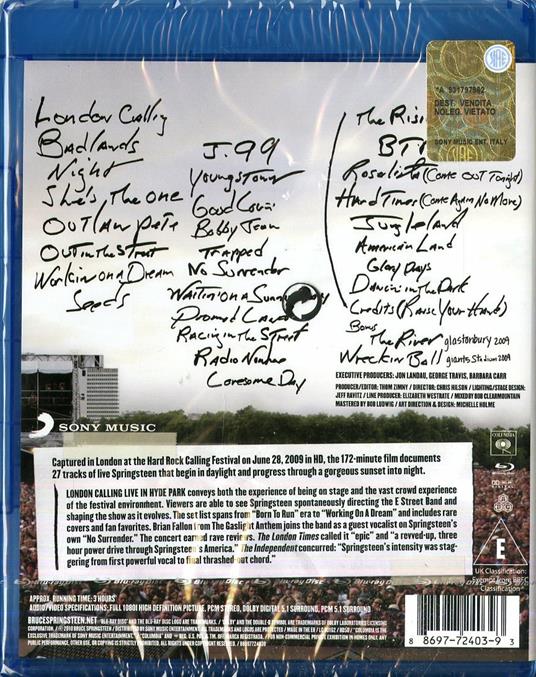 London Calling
Badlands
Night
She's The One
Outlaw Pete
Out in the Street
Workin' on a Dream
Seeds
J. 99
Youngstown
Good Lovin'
Bobby Jean
Trapped
No Surrender
Waitin' on a Sunny Day
Promised Land
Racing in the Street
Radio Nowhere
Lonesome Day
The Risi
BTR
Rosalita (Come Out Tonight)
Hard Times (Come Again No More)
Jungleland
American Land
Glory Days
Dancin' in the Dark
Credits (Raise Your Hand)
Bonus
The River glastonbury 2009
Wreckin' Ball giants stadium 2009
*A 931797992
DEST. VENDITA
NOLEG. VIETATO
SONY MUSIC ENT. ITALY
EXECUTIVE PRODUCERS: JON LANDAU, GEORGE TRAVIS, BARBARA CARR
PRODUCER/EDITOR: THOM ZIMNY / DIRECTOR: CHRIS HILSON / LIGHTING/STAGE DESIGN:
JEFF RAVITZ / LINE PRODUCER: ELIZABETH WESTRATE / MIXED BY BOB CLEARMOUNTAIN
MASTERED BY BOB LUDWIG / ART DIRECTION & DESIGN: MICHELLE HOLME
SONY MUSIC
COLUMBIA
Captured in London at the Hard Rock Calling Festival on June 28, 2009 in HD, the 172-minute film documents
27 tracks of live Springsteen that begin in daylight and progress through a gorgeous sunset into night.
LONDON CALLING LIVE IN HYDE PARK conveys both the experience of being on stage and the vast crowd experience
of the festival environment. Viewers are able to see Springsteen spontaneously directing the E Street Band and
shaping the show as it evolves. The set list spans from "Born To Run" era to "Working On A Dream" and includes rare
covers and fan favorites. Brian Fallon from The Gaslight Anthem joins the band as a guest vocalist on Springsteen's
own "No Surrender." The concert earned rave reviews. The London Times called it "epic" and "a revved-up, three
hour power drive through Springsteen's America." The Independent concurred: "Springsteen's intensity was stag-
gering from first powerful vocal to final thrashed-out chord."
E
UK Classification:
Exempt from BBFC
Classification
APPROX. RUNNING TIME: 3 HOURS
AUDIO/VIDEO SPECIFICATIONS: FULL 1080I HIGH DEFINITION PICTURE, PCM STEREO, DOLBY DIGITAL 5.1 SURROUND, PCM 5.1 SURROUND.
BRUCESPRINGSTEEN.NET
8 8697-72403-9 3